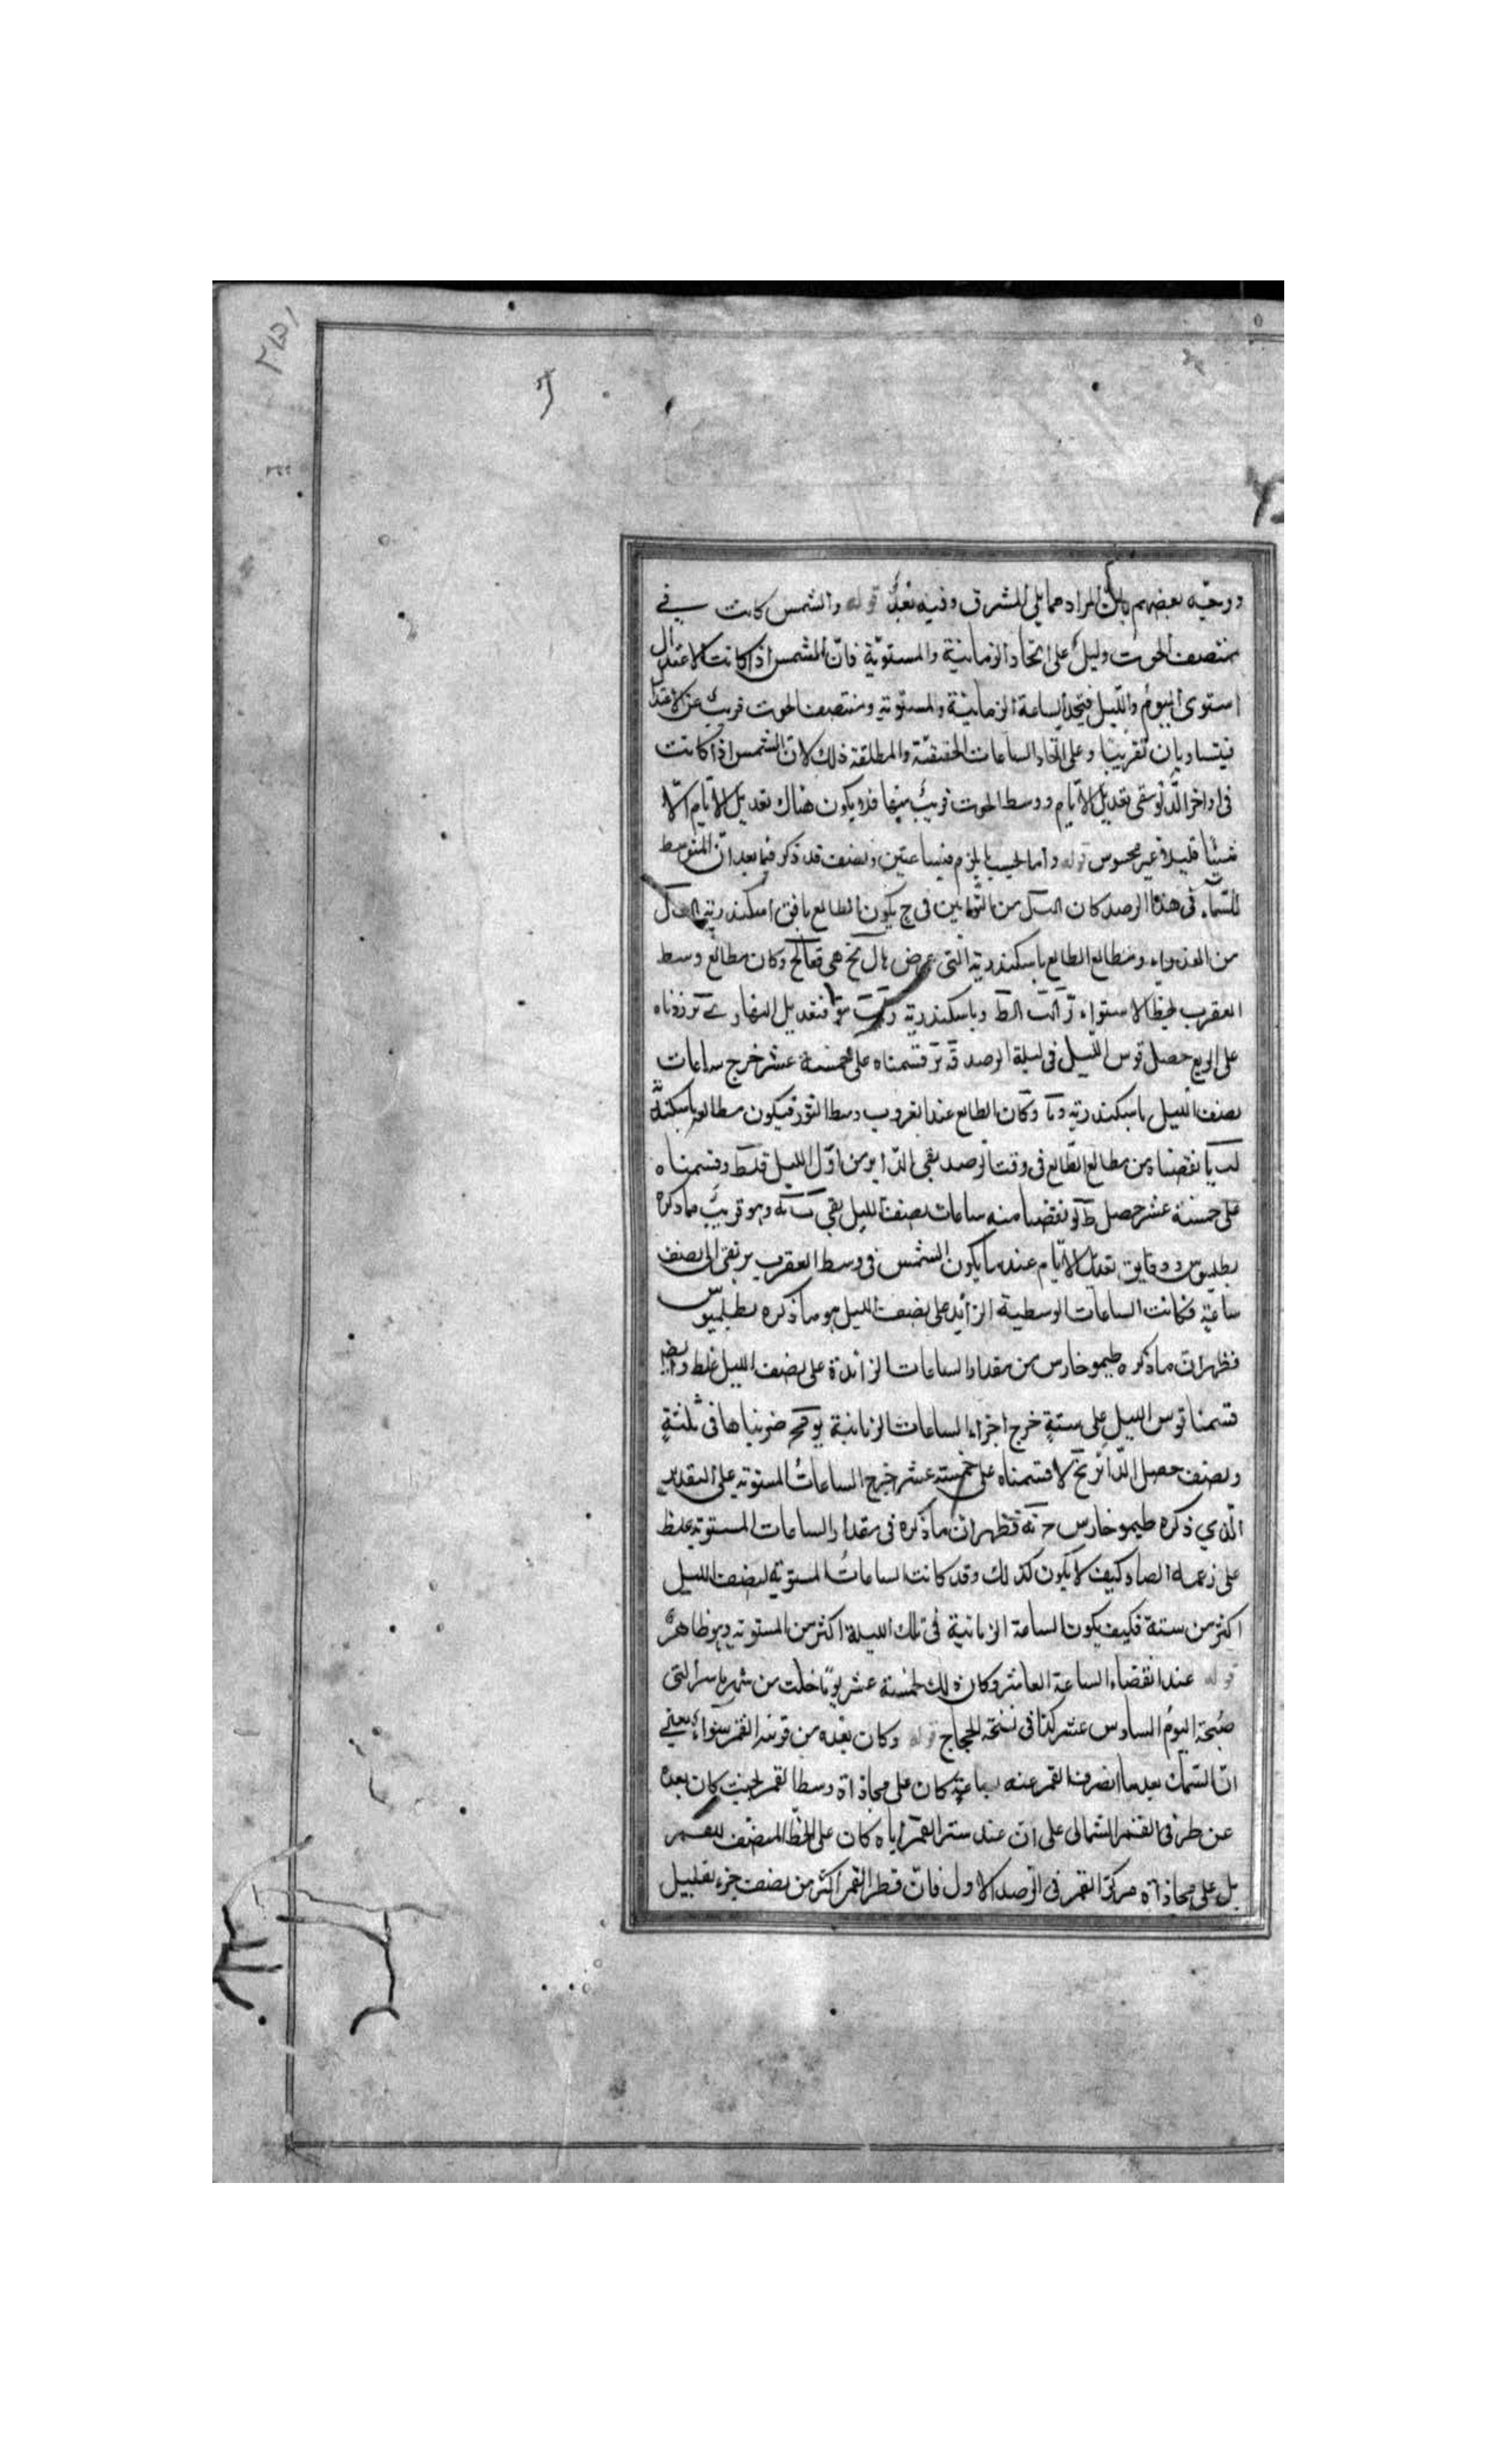 ووجّه بعضهم بانّ المراد مما يلى المشرق وفيه بُعدٌ قوله والشمس كانت في
منتصف الحوت دليل على اتحاد الزمانية والمستوية فانّ الشمس اذا كانت الاعتدال
استوى اليوم والليل فيتحد الساعة الزمانية والمستوية ومنتصف الحوت قريب عن الاعتدال
فيتساويان تقريبًا وعلى اتحاد الساعات الحقيقيّة والمطلقة ذلك لانّ الشمس اذا كانت
فى اواخر الدلو تعديل الايام ووسط الحوت قريب منها فلا يكون هناك تعديل الايام الّا
شيئًا قليلا غير محسوس قوله واما الحساب يلزم فساعتين ونصف قد ذكر فيما بعد انّ المتوسط
للسماء فى هذا الرصد كان من التوأمين فى ح يكون الطالع بافق اسكندرية
من العذراء ومطالع الطالع باسكندرية التى عرض هى وكان مطالع وسط
العقرب بخط الاستواء وباسكندرية فتعديل النهار زدناه
على الربع حصل قوس الليل فى ليلة الرصد قسمناه على خمسة عشر خرج ساعات
نصف الليل باسكندرية وكان الطالع عند الغروب وسط الثور فيكون مطالعه باسكندرية
نقصناه من مطالع الطالع فى وقت الرصد بقى الدّاير من اوّل الليل وقسمناه
على خمسة عشر حصل نقصنا منه ساعات نصف الليل بقى وهو قريبٌ مما ذكره
بطليموس ودقايق تعديل الايام عند ما يكون الشمس فى وسط العقرب يرتقى الى نصف
ساعة فكانت الساعات الوسطية الزايد على نصف الليل هو ما ذكره بطلميوس
فظهر ان ما ذكره طيموخارس من مقدار الساعات الزائدة على نصف الليل غلط وايضا
قسمنا قوس الليل على ستةٍ خرج اجزاء الساعات الزمانية ضربناها فى ثلثةٍ
ونصف حصل الدّائر قسمناه على خمسة عشر خرج الساعات المستوية على التقدير
الّذي ذكره طيموخارس فظهر انّ ما ذكره فى مقدار الساعات المستوية غلط
على زعمه ايضا وكيف لا يكون كذلك وقد كانت الساعاتُ المستوية لنصف الليل
اكثر من ستة فكيف يكون الساعة الزمانية فى تلك الليلة اكثر من المستوية وهو ظاهرٌ
قوله عند انقضاء الساعة العاشر وكان ذلك لخمسة عشر يومًا خلت من شهر التى
صُبحة اليوم السادس عشر كذا فى نسخة الحجاج قوله وكان بُعده من قرنى القمر سواء يعني
انّ السماك بعد ما انصرف القمر عنه بساعةٍ كان على محاذاة وسط القمر بحيث كان بعده
عن طرفى القمر الشمالى على انّ عند ستر القمر اياه كان على الخطّ المنصف للقمر
بل على محاذاة مركز القمر فى الرصد الاول فانّ قطر القمر اكثر من نصف جزء بقليل